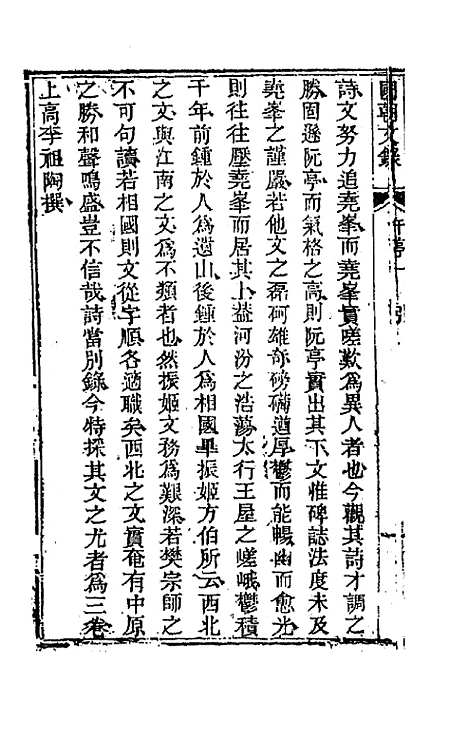 國朝文錄 午亭一 引
詩文努力追堯峯而堯峯實嗟歎爲異人者也今觀其詩才調之
勝固遜阮亭而氣格之高則阮亭實出其下文惟碑誌法度未及
堯峯之謹嚴若他文之磊砢雄奇磅礴遒厚鬱而能暢幽而愈光
則往往壓堯峯而居其上益河汾之浩蕩太行王屋之嵯峨鬱積
千年前鍾於人爲遺山後鍾於人爲相國畢振姬方伯所云西北
之文與江南之文爲不類者也然振姬文務爲艱深若樊宗師之
不可句讀若相國則文從字順各適職矣西北之文實奄有中原
之勝和聲鳴盛豈不信哉詩當別錄今特採其文之尤者爲三卷
上高李祖陶撰